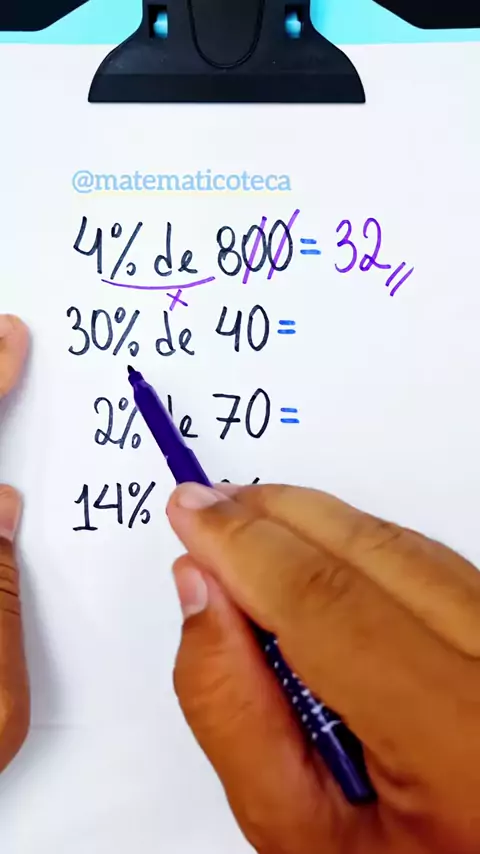 @matematicoteca
4% de 800 = 32
x
30% de 40 =
2% de 70 =
14%